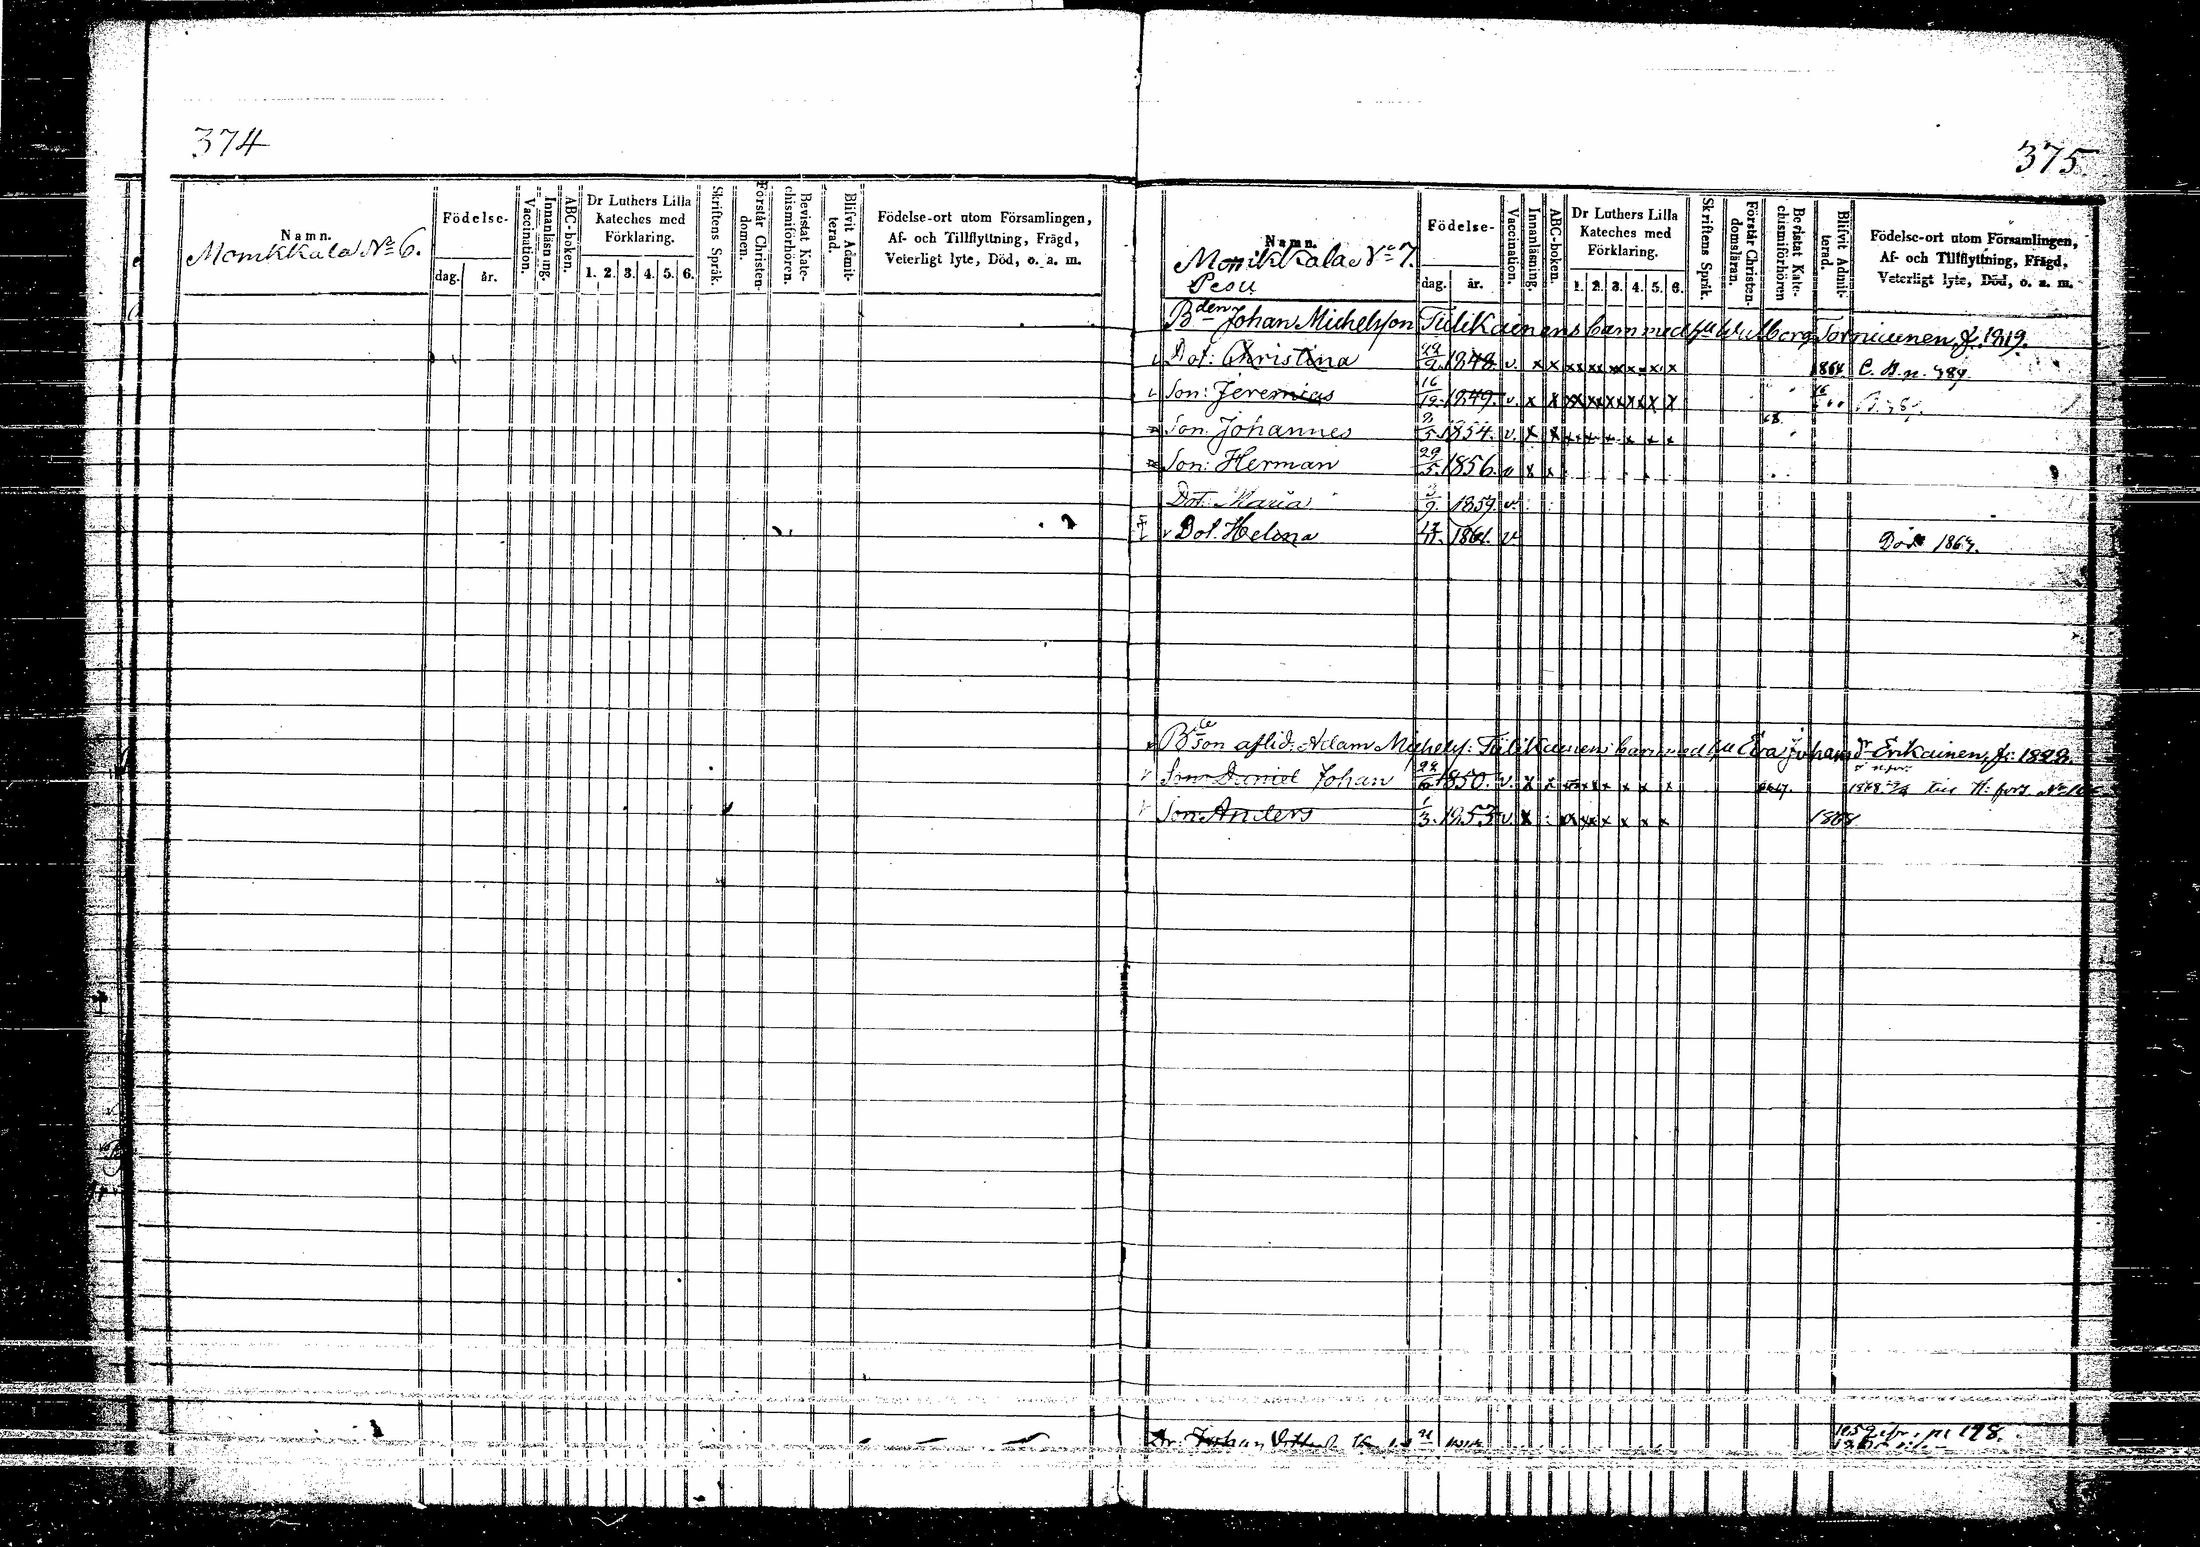 374
Namn.
Monikkala No 6.
Födelse-
dag. år.
Vaccination.
Innanläsning.
ABC-boken.
Dr Luthers Lilla
Kateches med
Förklaring.
1. 2. 3. 4. 5. 6.
Skriftens Språk.
Förstår Christen-
domen.
Bevistat Kate-
chismiförhören.
Blifvit Admit-
terad.
Födelse-ort utom Församlingen,
Af- och Tillflyttning, Frägd,
Veterligt lyte, Död, o. a. m.
375
Namn.
Monikkala No 7.
Pesu
Födelse-
dag. år.
Vaccination.
Innanläsning.
ABC-boken.
Dr Luthers Lilla
Kateches med
Förklaring.
1. 2. 3. 4. 5. 6.
Skriftens Språk.
Förstår Christen-
domsläran.
Bevistat Kate-
chismiförhören
Blifvit Admit-
terad.
Födelse-ort utom Församlingen,
Af- och Tillflyttning, Frägd,
Veterligt lyte, Död, o. a. m.
Bden Johan Michelsson Tulikainens barn med Torniainen f. 1819.
v Dot: Christina 1848. v. x x x x x x x x 1864. C. B. n. 384.
v Son: Jeremias 16/12 1849. v. x x x x x x x x
Son: Johannes 1854. v. x x x x x x x x 68.
Son: Herman 29/5 1856. v x x
Dot: Maria 1859. v.
v Dot. Helena 1861. v Död 1867.
Bdeson aflid. Adam Michels: Tulikainens barn med Eva Johans dr Erikainen, f.
v Son Daniel Johan 1850. v. x x x x x x x x
v Son Anders 1/3 1853 v x x x x x x x 1868
198.